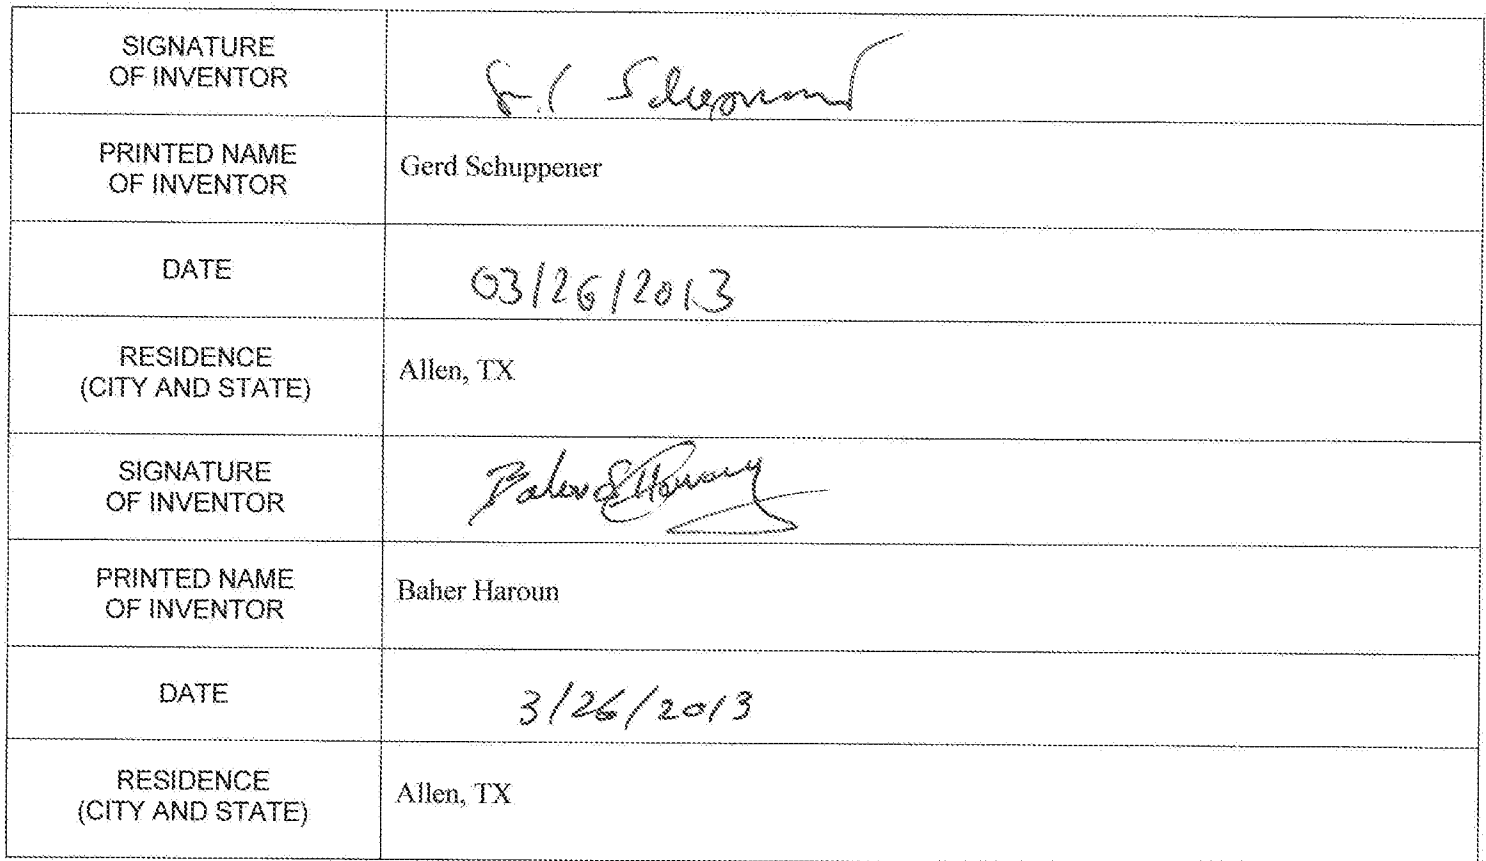 SIGNATURE
OF INVENTOR
PRINTED NAME
OF INVENTOR
Gerd Schuppener
DATE
03/26/2013
RESIDENCE
(CITY AND STATE)
Allen, TX
SIGNATURE
OF INVENTOR
Baher Haroun
PRINTED NAME
OF INVENTOR
Baher Haroun
DATE
3/26/2013
RESIDENCE
(CITY AND STATE)
Allen, TX